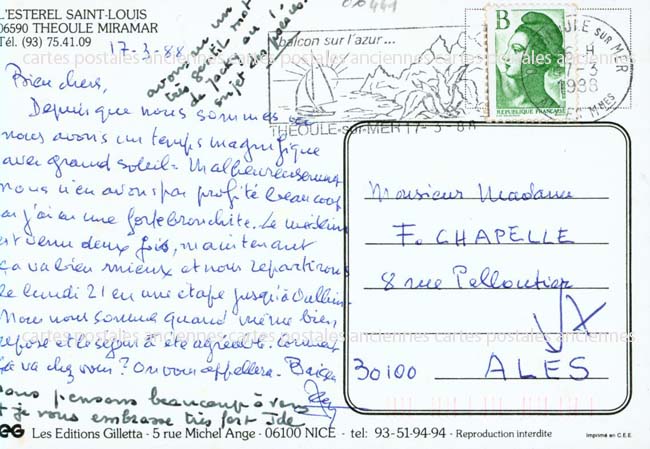 L'ESTEREL SAINT-LOUIS
06590 THEOULE MIRAMAR
Tél. (93) 75.41.09
17-3-88
avons eu un
très gentil mot
de Jacky au
sujet des
balcon sur l'azur...
THÉOULE-sur-MER 17-3-88
B
REPUBLIQUE FRANÇAISE
THEOULE SUR MER
17-3
1988
ALPES Mmes
Bien chers,
Depuis que nous sommes
nous avons un temps magnifique
avec grand soleil - Malheureusement
nous n'en avons pas profité beaucoup
car j'ai eu une forte bronchite. Le médecin
est venu deux fois, maintenant
ça va bien mieux et nous repartirons
le lundi 21 en une étape jusqu'à Oullins
Nous nous sommes quand même bien
reposé et le séjour a été agréable. Comment
ça va chez vous? On vous appellera. Baisers
nous pensons beaucoup à vous
et je vous embrasse très fort
Monsieur Madame
F. CHAPELLE
8 rue Pelloutier
30100 ALÈS
EG Les Editions Gilletta - 5 rue Michel Ange - 06100 NICE - tel: 93-51-94-94 - Reproduction interdite
Imprimé en C.E.E.
cartes postales anciennes cartes postales anciennes cartes postales anciennes
cartes postales anciennes cartes postales anciennes cartes postales anciennes